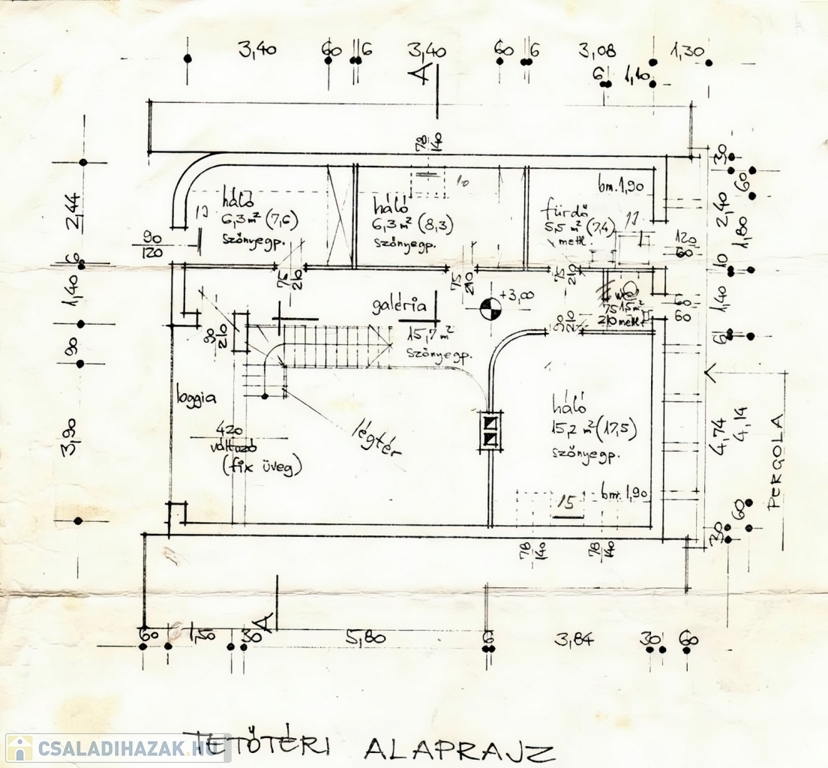 3,40 60 6 3,40 60 6 3,08 1,30
6 1,10
A
78
140
30
60
2,44
háló
6,3 m² (7,6)
szőnyegp.
háló
6,3 m² (8,3)
szőnyegp.
10
bm. 1,90
fürdő
5,5 m² (7,4)
mettl.
2,40
1,80
90
120
120
60
6
10
75
210
75
210
75
210
1,40
galéria
+3,00
WC
1,5 m²
75
210 mettl.
60
60
1,40
90
210
90
210
15,7 m²
szőnyegp.
6
90
loggia
légtér
háló
15,2 m² (17,5)
szőnyegp.
4,74
4,14
PERGOLA
3,90
420
változó
(fix üveg)
15
bm. 1,90
60
30
78
140
78
140
A
60 1,50 30 5,80 6 3,84 30 60
TETŐTÉRI ALAPRAJZ
CSALADIHAZAK.HU